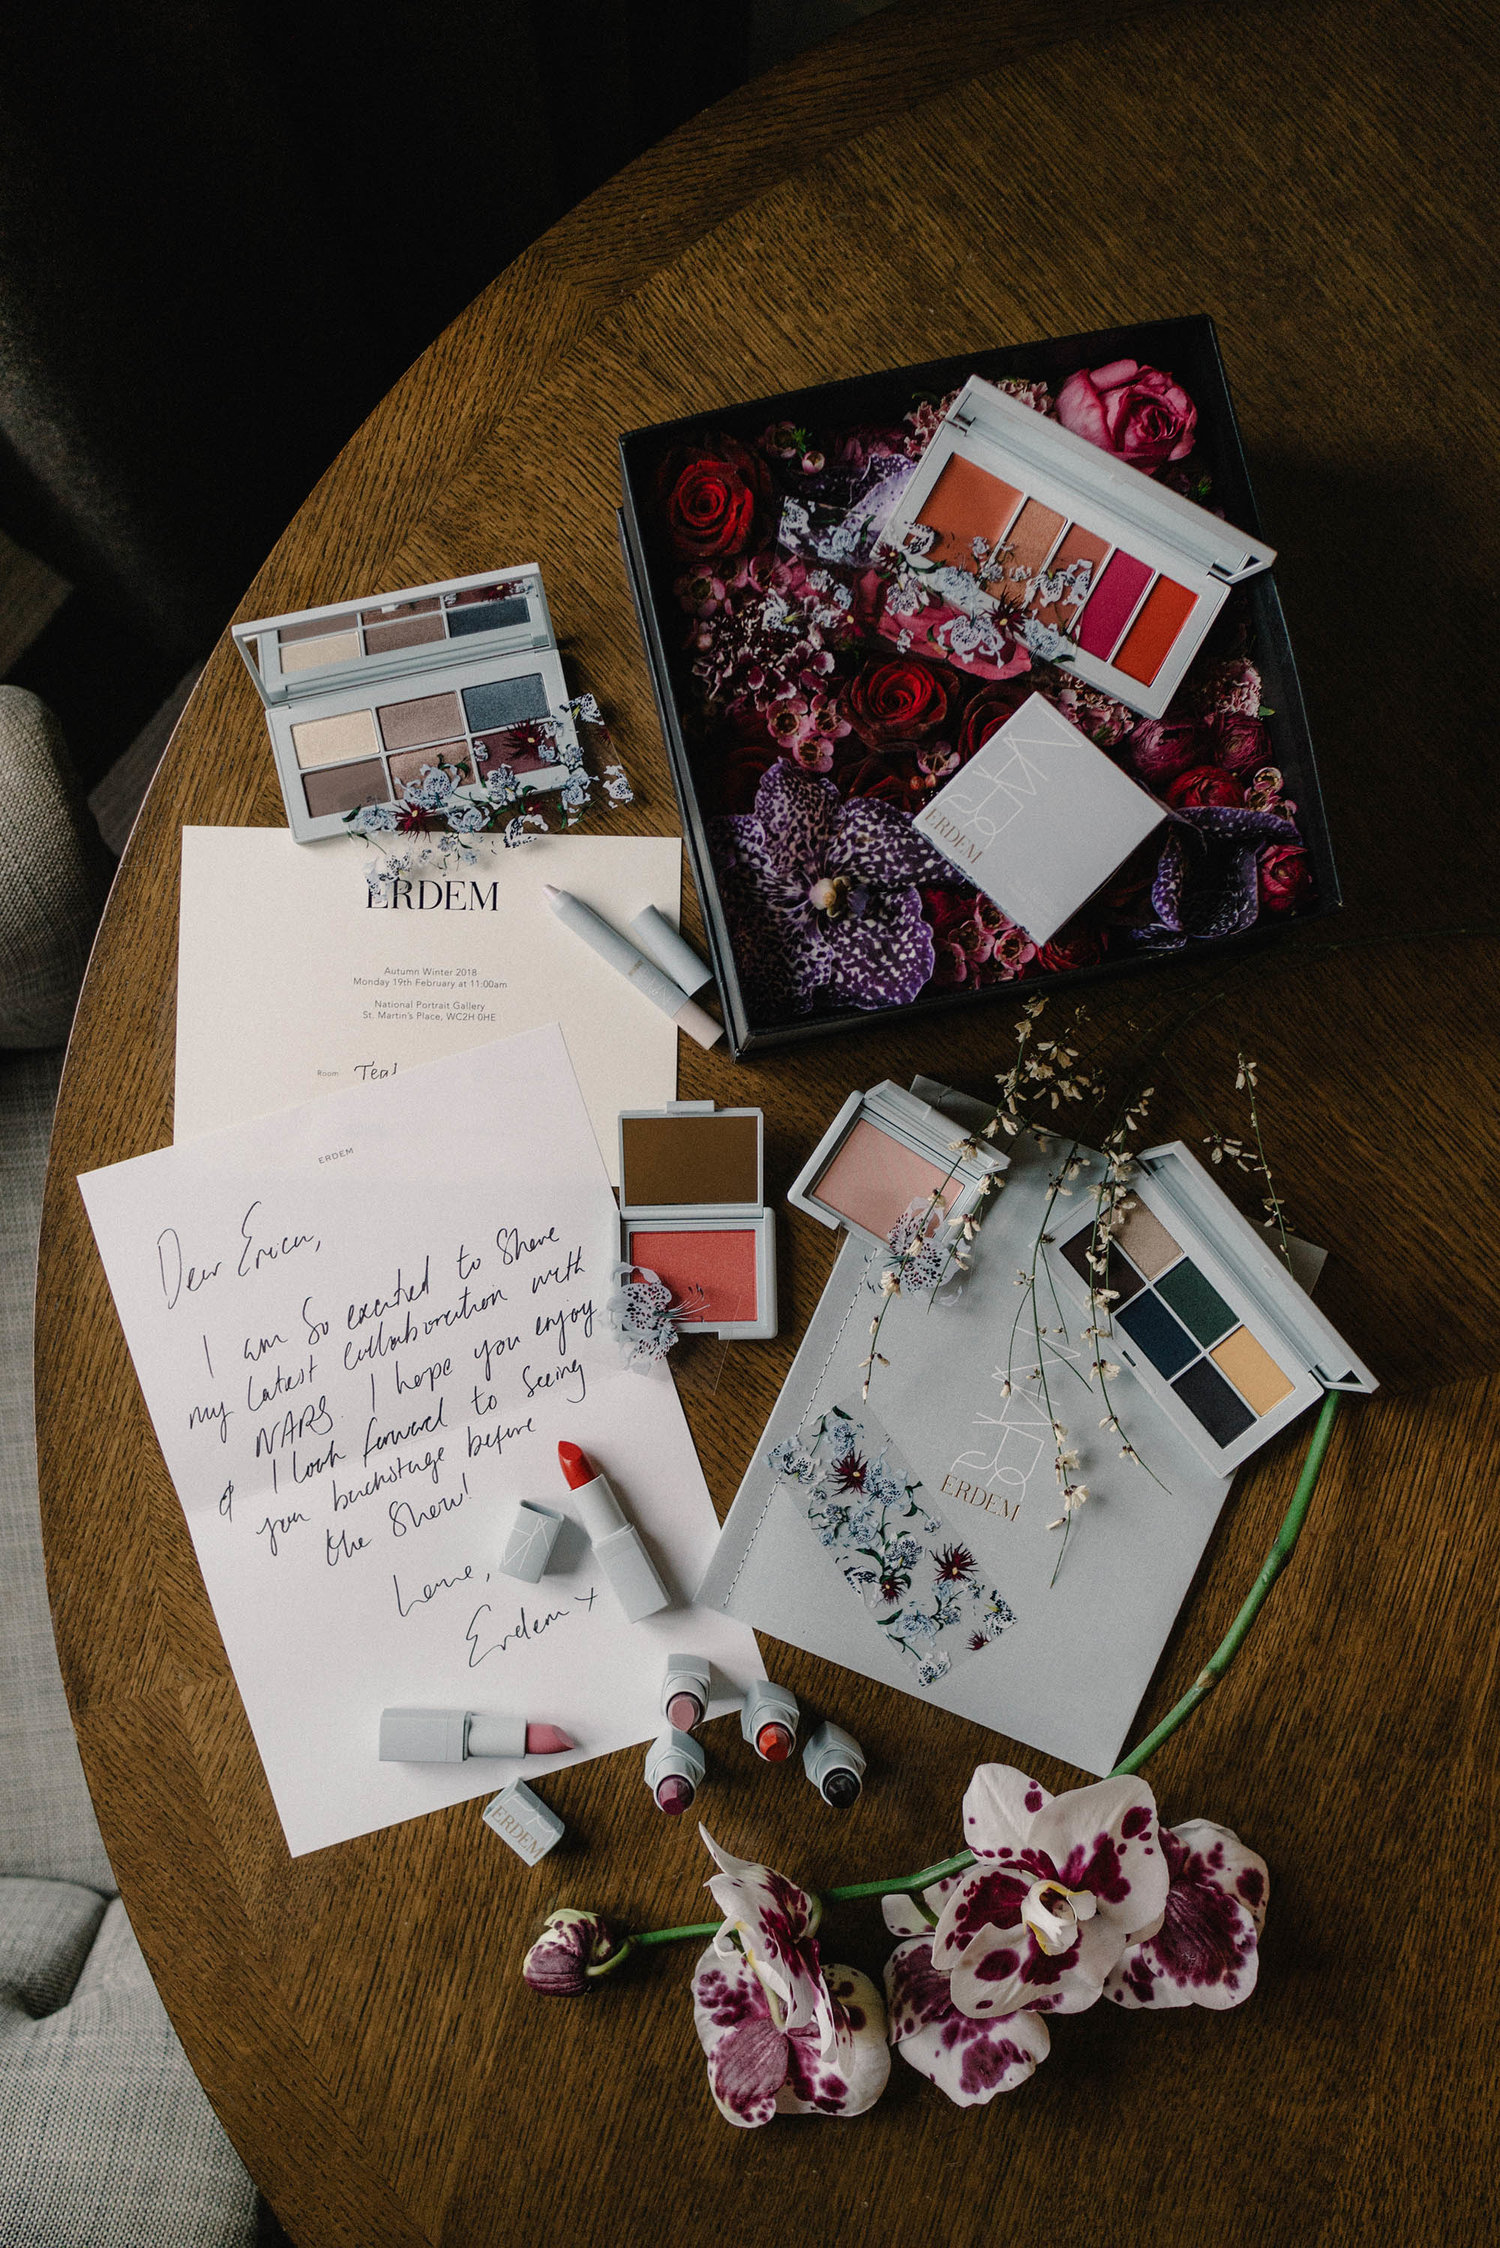 NARS
ERDEM
ERDEM
Autumn Winter 2018
Monday 19th February at 11:00am
National Portrait Gallery
St. Martin's Place, WC2H 0HE
Room Teal
ERDEM
Dear Erica,
I am so excited to share
my latest collaboration with
NARS. I hope you enjoy
& I look forward to seeing
you backstage before
the show!
Love,
Erdem x
NARS
ERDEM
NARS
ERDEM